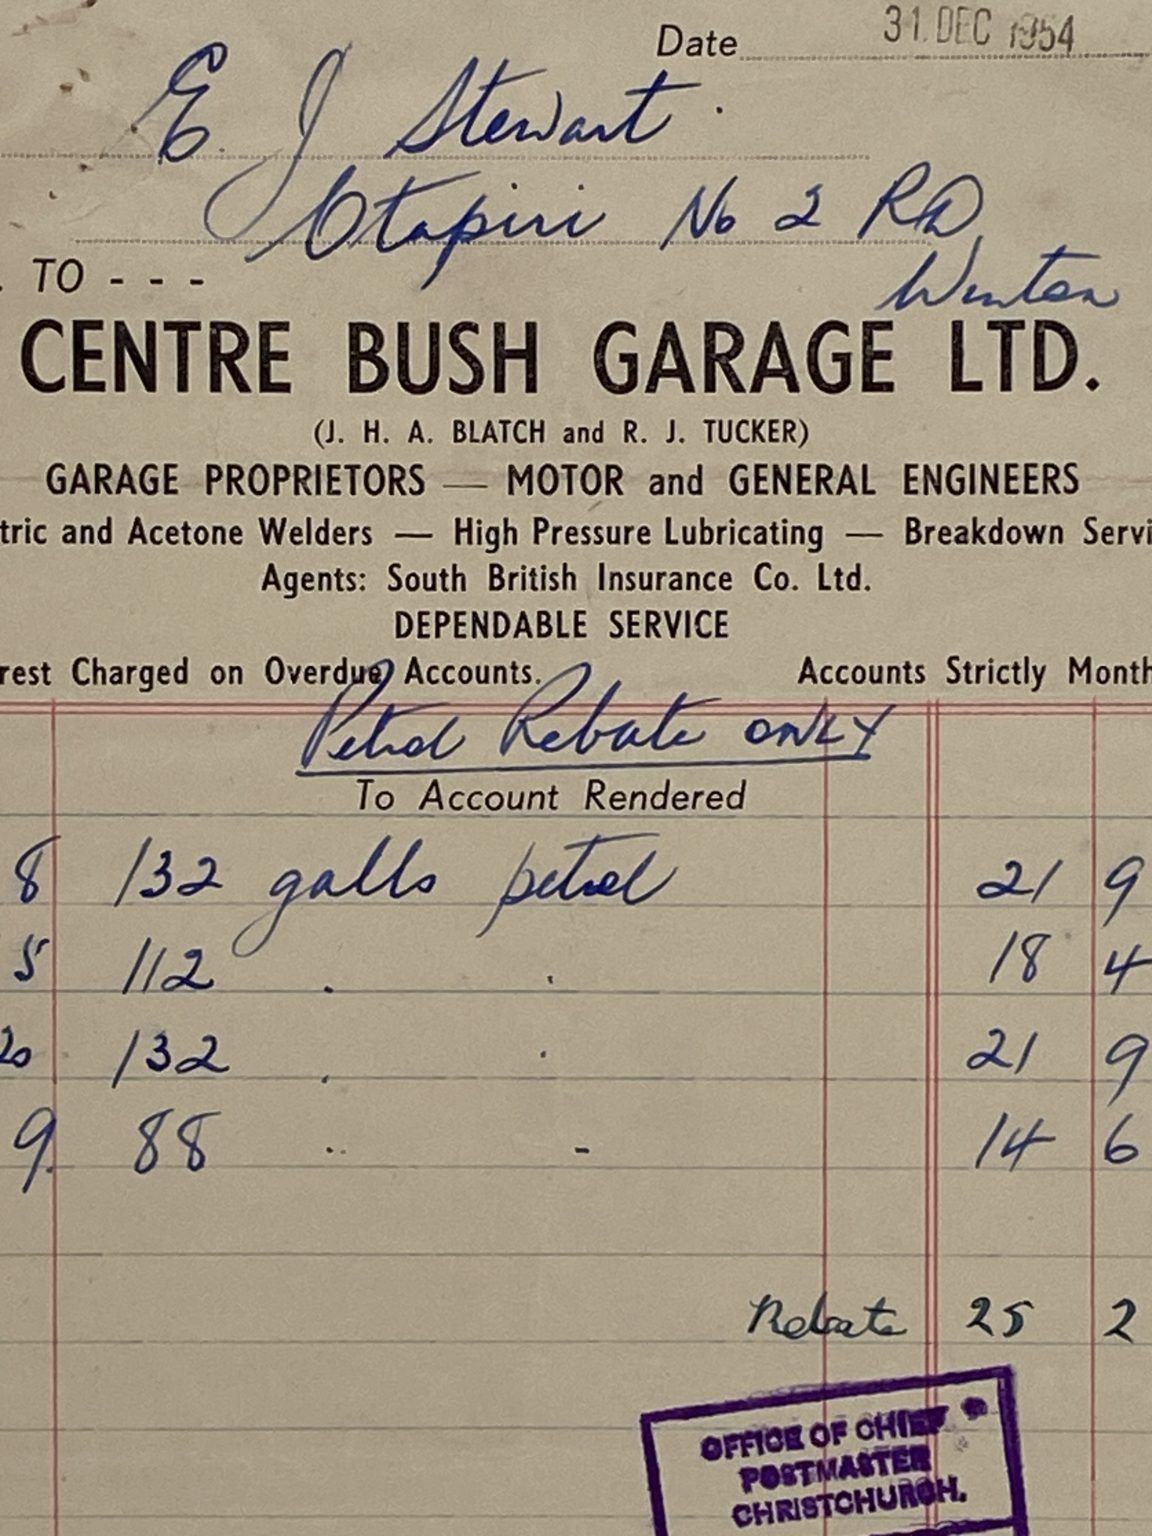 Date 31. DEC 1954
E. J Stewart
Otapiri No 2 RD
Winton
TO - - -
CENTRE BUSH GARAGE LTD.
(J. H. A. BLATCH and R. J. TUCKER)
GARAGE PROPRIETORS — MOTOR and GENERAL ENGINEERS
tric and Acetone Welders — High Pressure Lubricating — Breakdown Servi
Agents: South British Insurance Co. Ltd.
DEPENDABLE SERVICE
rest Charged on Overdue Accounts. Accounts Strictly Month
Petrol Rebate ONLY
To Account Rendered
8 132 galls petrol 21 9
5 112 . . 18 4
20 132 . . 21 9
9. 88 .. - 14 6
Rebate 25 2
OFFICE OF CHIEF
POSTMASTER
CHRISTCHURCH.